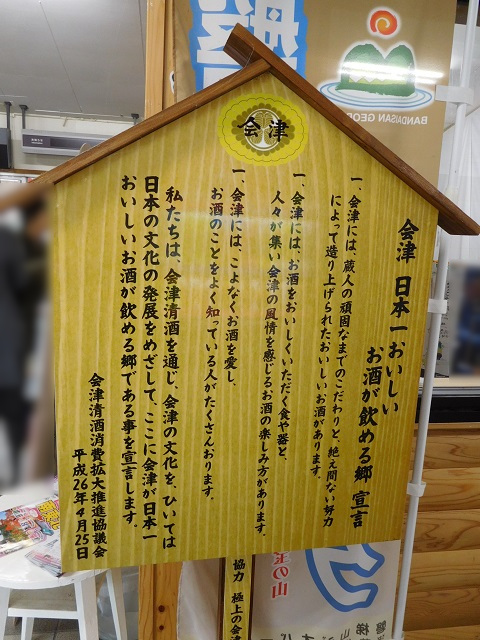 会津
会津 日本一おいしい
お酒が飲める郷 宣言
一、会津には、蔵人の頑固なまでのこだわりと、絶え間ない努力
によって造り上げられたおいしいお酒があります。
一、会津には、お酒をおいしくいただく食や器と、
人々が集い会津の風情を感じるお酒の楽しみ方があります。
一、会津には、こよなくお酒を愛し、
お酒のことをよく知っている人がたくさんおります。
私たちは、会津清酒を通じ、会津の文化を、ひいては
日本の文化の発展をめざして、ここに会津が日本一
おいしいお酒が飲める郷である事を宣言します。
会津清酒消費拡大推進協議会
平成26年4月25日
協力 極上の会津
BANDAISAN GEO
宝の山
磐梯山